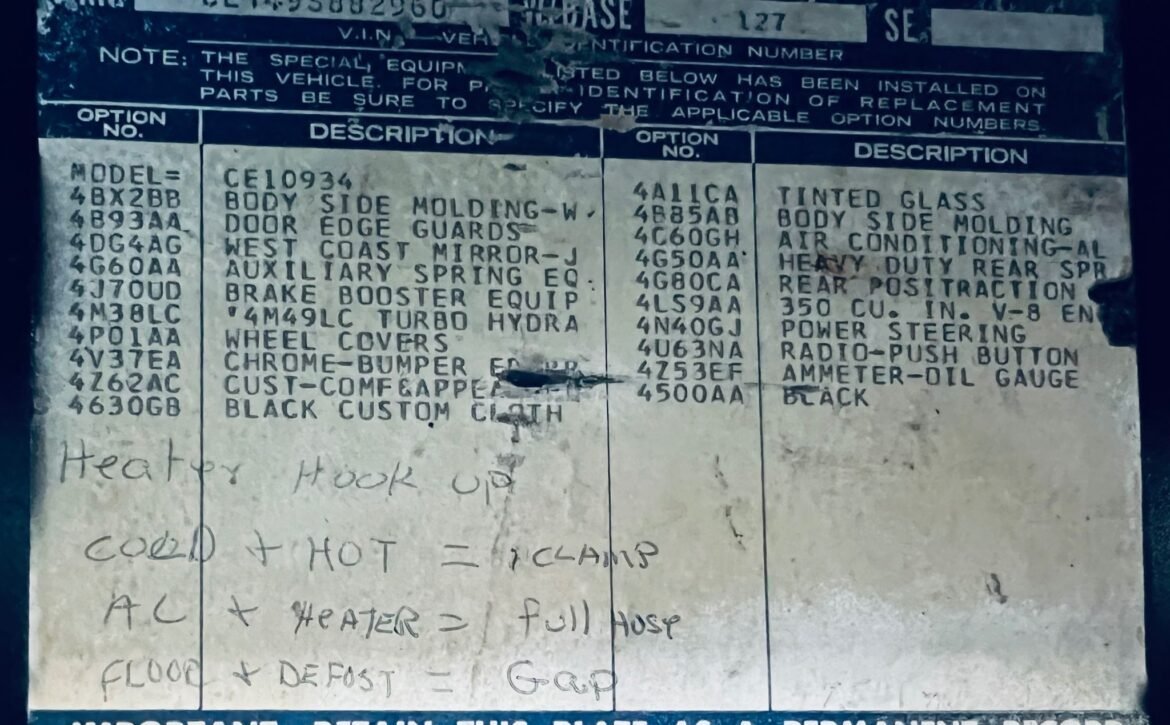 BASE 127 SE
V.I.N. — VEH NTIFICATION NUMBER
NOTE: THE SPECIAL EQUIPM ISTED BELOW HAS BEEN INSTALLED ON
THIS VEHICLE. FOR P IDENTIFICATION OF REPLACEMENT
PARTS BE SURE TO SPECIFY THE APPLICABLE OPTION NUMBERS.
OPTION NO. DESCRIPTION OPTION NO. DESCRIPTION
MODEL= CE10934
4BX2BB BODY SIDE MOLDING-W. 4A11CA TINTED GLASS
4B93AA DOOR EDGE GUARDS 4B85AB BODY SIDE MOLDING
4DG4AG WEST COAST MIRROR-J 4C60GH AIR CONDITIONING-AL
4G60AA AUXILIARY SPRING EQ. 4G50AA HEAVY DUTY REAR SPR
4J70UD BRAKE BOOSTER EQUIP 4G80CA REAR POSITRACTION
4M38LC *4M49LC TURBO HYDRA 4LS9AA 350 CU. IN. V-8 EN
4P01AA WHEEL COVERS 4N40GJ POWER STEERING
4V37EA CHROME-BUMPER 4U63NA RADIO-PUSH BUTTON
4Z62AC CUST-COMF&APPEA 4Z53EF AMMETER-OIL GAUGE
4630GB BLACK CUSTOM CLOTH 4500AA BLACK
Heater Hook up
COOLD + HOT = 1 CLAMP
AC + HEATER = full Hose
FLOOR + DEFOST = Gap
IMPORTANT: RETAIN THIS PLATE AS A PERMANENT